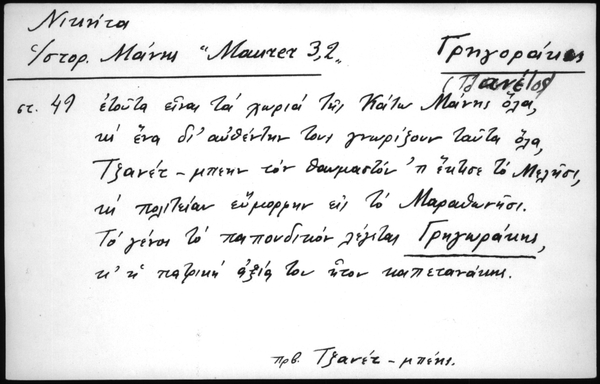 Νικήτα
Ἱστορ. Μάνης "Maurer 3,2„
Γρηγοράκης
(Τζανέτος)
στ. 49 ἐτοῦτα εἶναι τά χωριά τῆς Κάτω Μάνης ὅλα,
κι ἕνα δι' αὐθέντην τους γνωρίζουν ταῦτα ὅλα,
Τζανέτ-μπεην τόν θαυμαστόν 'π' ἔκτισε τό Μελῆσι,
κι πολιτείαν εὔμορφην εἰς τό Μαραθωνῆσι.
Τό γένος τό παπουδικόν λέγεται Γρηγωράκης,
κ' ἡ πατρική ἀξία του ἦτον καπετανάκης.
πρβ. Τζανέτ-μπέης.